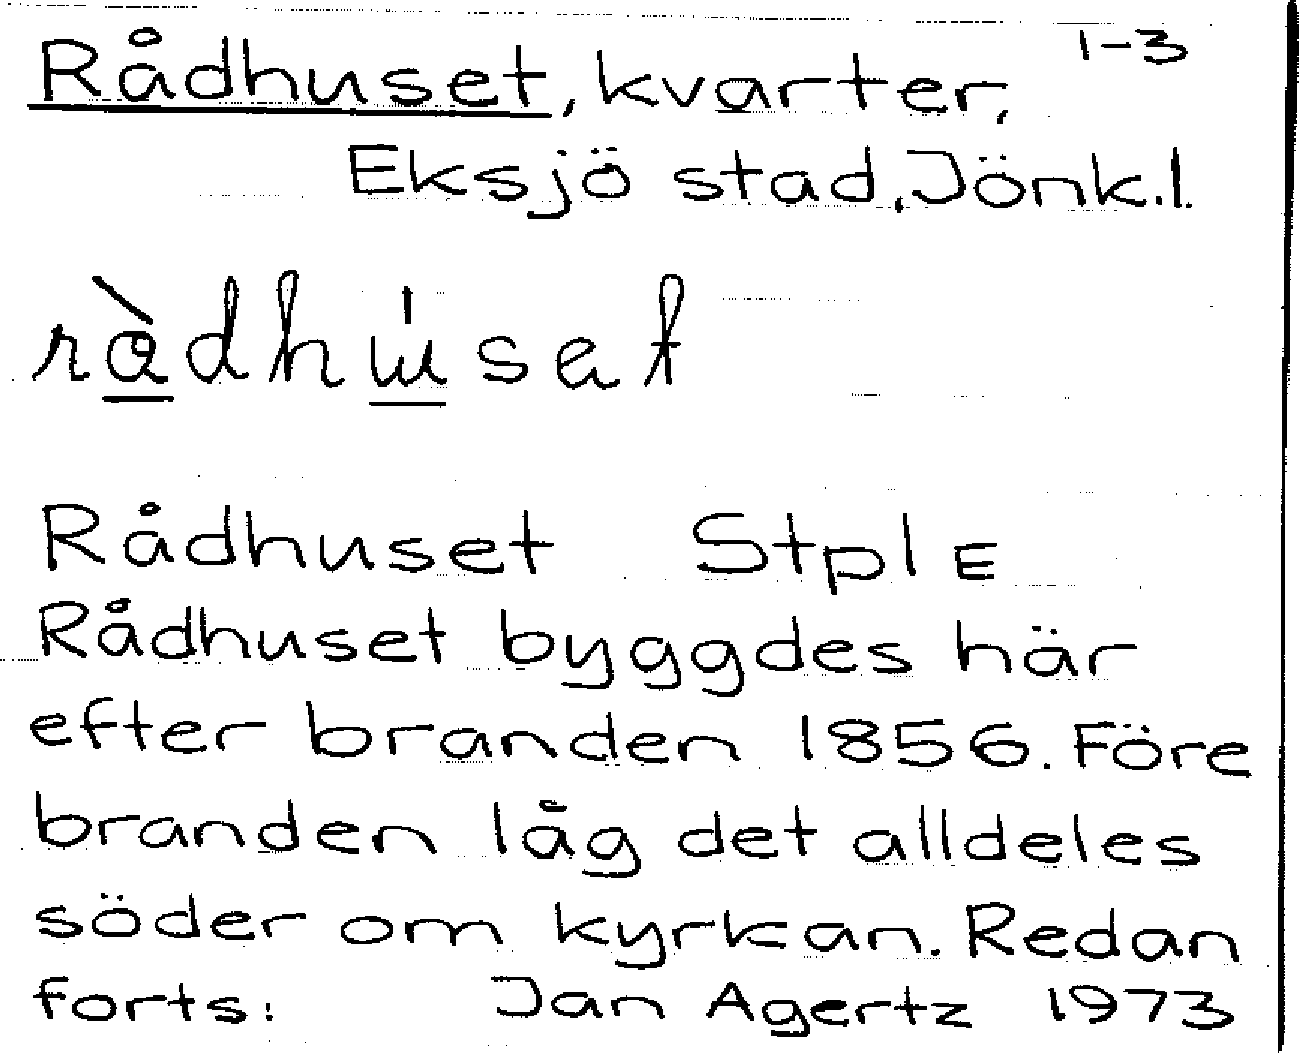 Rådhuset, kvarter, 1-3
Eksjö stad, Jönk.l.
Rådhuset Stpl E
Rådhuset byggdes här
efter branden 1856. Före
branden låg det alldeles
söder om kyrkan. Redan
forts: Jan Agertz 1973